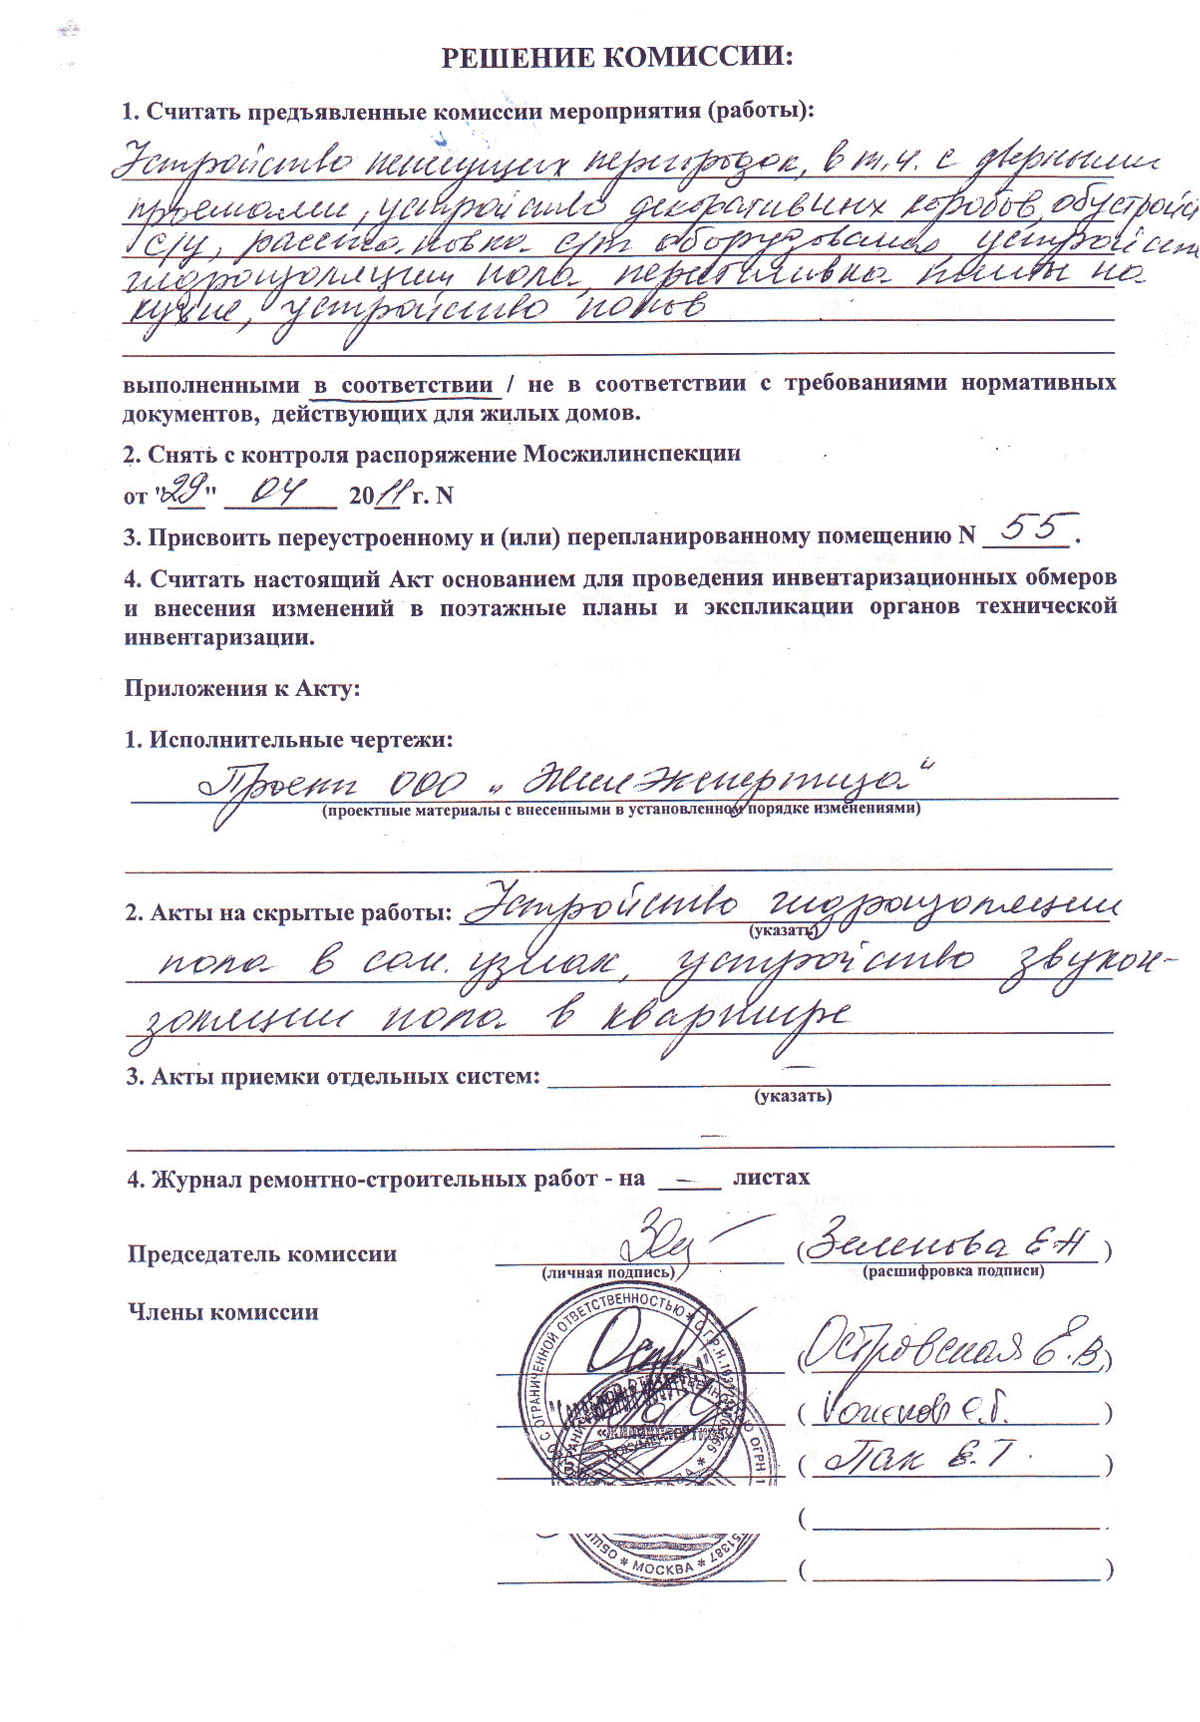 РЕШЕНИЕ КОМИССИИ:
1. Считать предъявленные комиссии мероприятия (работы):
Устройство ненесущих перегородок, в т.ч. с дверными
проемами, устройство декоративных коробов, обустройст
с/у, расстановка с/т оборудования устройст
гидроизоляции пола, перестановка плиты на
кухне, устройство полов
выполненными в соответствии / не в соответствии с требованиями нормативных
документов, действующих для жилых домов.
2. Снять с контроля распоряжение Мосжилинспекции
от "29" 04 2011 г. N
3. Присвоить переустроенному и (или) перепланированному помещению N 55.
4. Считать настоящий Акт основанием для проведения инвентаризационных обмеров
и внесения изменений в поэтажные планы и экспликации органов технической
инвентаризации.
Приложения к Акту:
1. Исполнительные чертежи:
Проект ООО „ЖилЭкспертиза“
(проектные материалы с внесенными в установленном порядке изменениями)
2. Акты на скрытые работы: Устройство гидроизоляции
(указать)
пола в сан. узлах, устройство звукои-
золяции пола в квартире
3. Акты приемки отдельных систем: —
(указать)
—
4. Журнал ремонтно-строительных работ - на — листах
Председатель комиссии (Зеленова Е Н)
(личная подпись) (расшифровка подписи)
Члены комиссии
С ОГРАНИЧЕННОЙ ОТВЕТСТВЕННОСТЬЮ * О.Г.Р.Н.
(Островская Е.В.)
( )
(Пак Е.Т. )
(
* МОСКВА *
( )